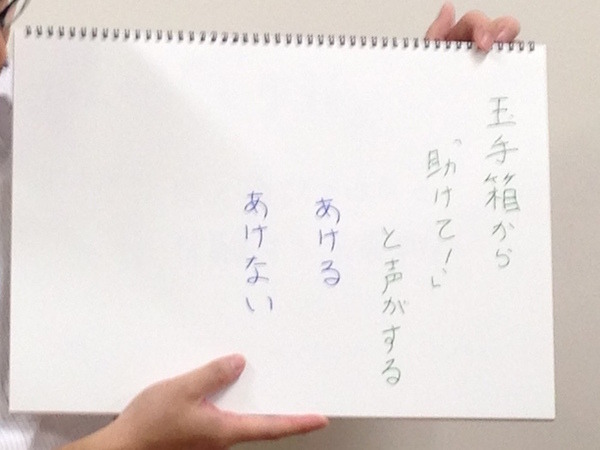 玉手箱から
「助けて！」
と声がする
あける
あけない